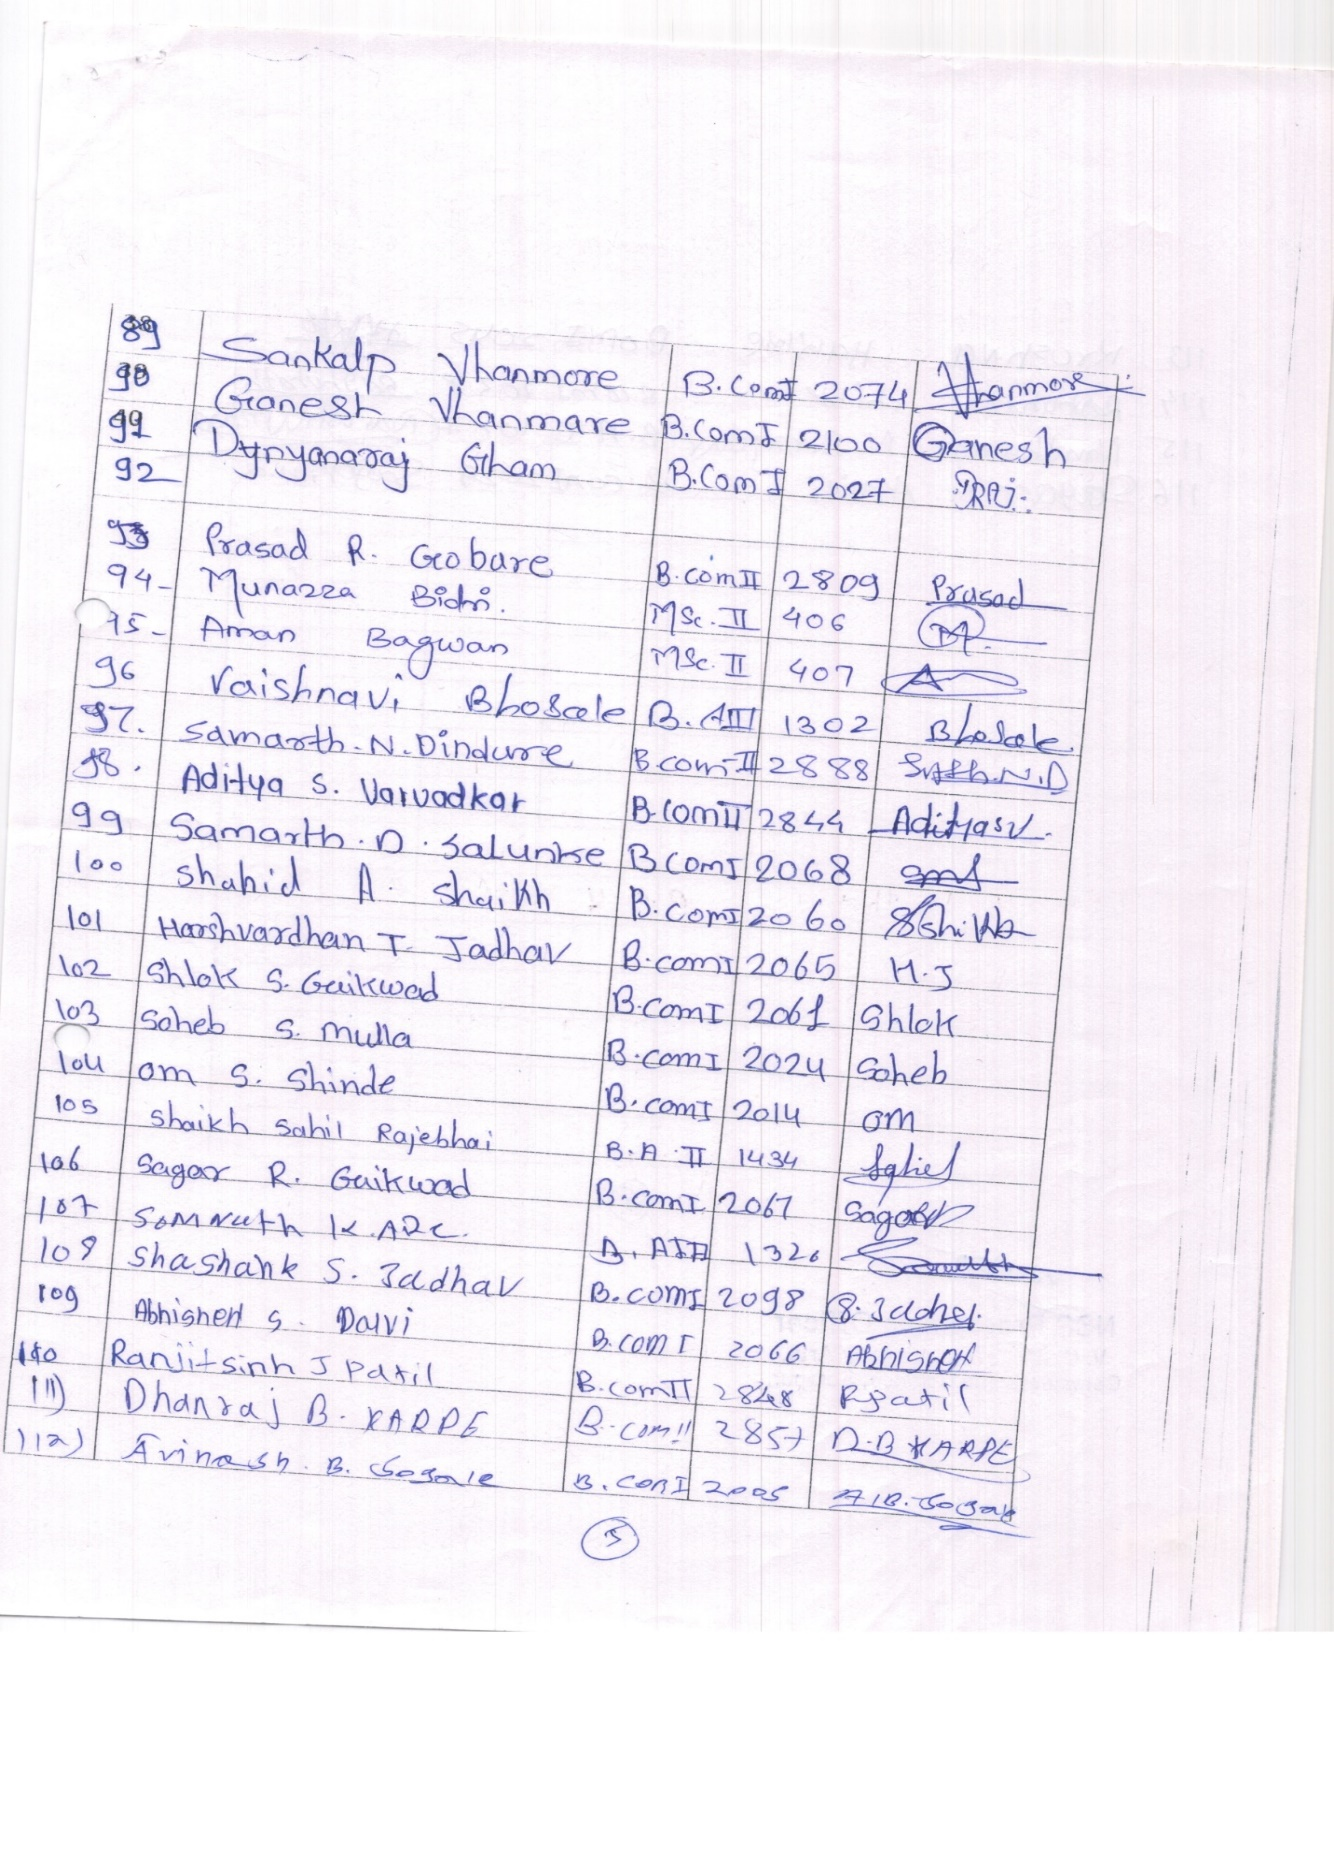 89 Sankalp Vhanmore B.Com I 2074 Vhanmore
90 Ganesh Vhanmare B.Com I 2100 Ganesh
91 Dynyanaraj Gham B.Com I 2027 Raj.
92
93 Prasad R. Gobare B.com II 2809 Prasad
94- Munazza Bidri. MSc. II 406
95- Aman Bagwan MSc. II 407 A
96 Vaishnavi Bhosale B. A III 1302 Bhosale
97. Samarth. N. Dindure B.com-II 2888
98. Aditya S. Varvadkar B.Com II 2844 Adityasv.
99 Samarth. D. Salunke B Com I 2068
100 Shahid A. Shaikh B.com I 2060
101 Harshvardhan T. Jadhav B.com I 2065 H.J
102 Shlok S. Gaikwad B.Com I 2061 Shlok
103 Soheb S. Mulla B.com I 2024 Soheb
104 om S. Shinde B.com I 2014 om
105 Shaikh Sahil Rajebhai B.A II 1434
106 Sagar R. Gaikwad B.com I 2067 Sagar
107 Somnath K. 1326
108 Shashank S. Jadhav B.com I 2098 S. Jadhav.
109 Abhishek S. Dalvi B.com I 2066 Abhishek
110 Ranjitsinh J Patil B.com II 2848 RJPatil
111) Dhanraj B. KARPE B.com II 2857 D.B KARPE
112) Avinash. B. B.com I 2005
5